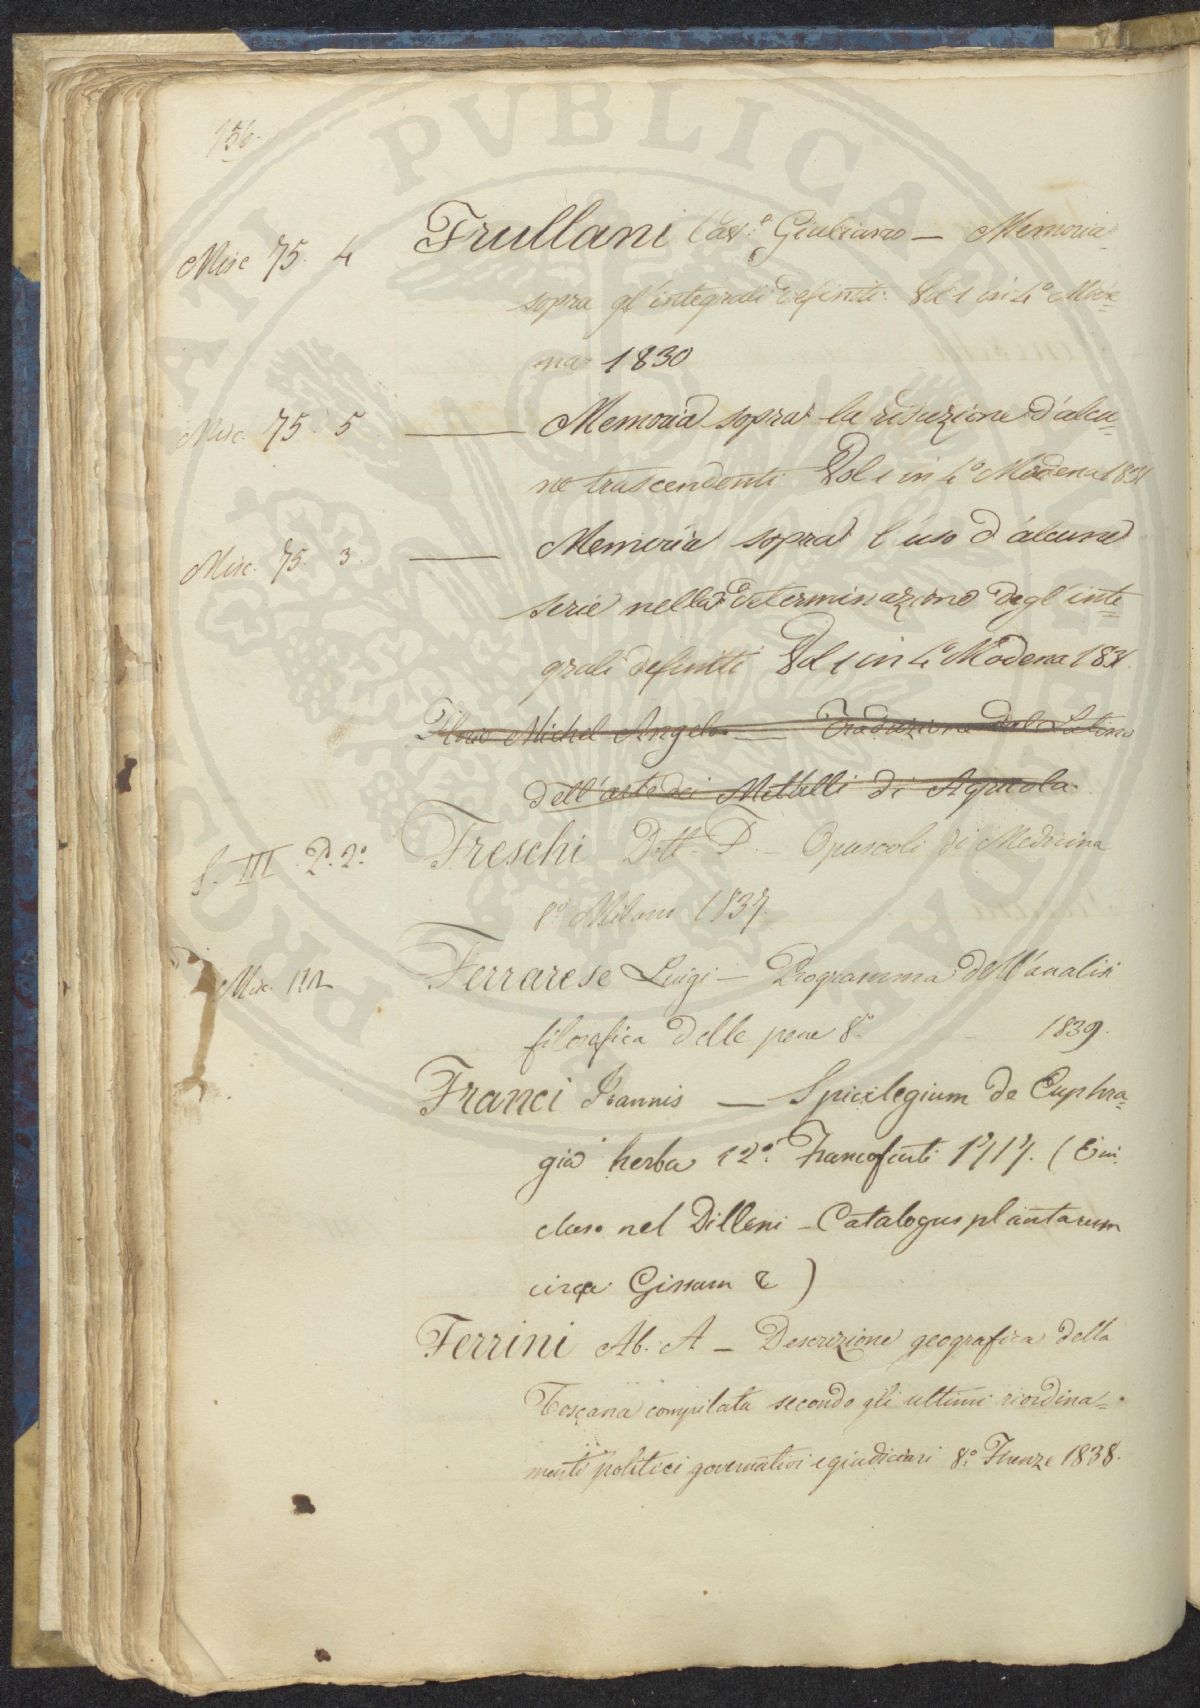 156.
Misc 75. 4 Frullani Cav.e Giuliano — Memoria
sopra gl'integrali definiti. Vol 1 in 4.o Mode=
na 1830
Misc. 75. 5 —— Memoria sopra la riduzione d'alcu=
ne trascendenti Vol 1 in 4.o Modena 1831
Misc. 75. 3. —— Memoria sopra l'uso d'alcune
serie nella determinazione degl'inte=
grali definiti Vol 1 in 4.o Modena 183
Michel Angelo — Traduzione dal Latino
dell'arte dei Metalli di Agricola.
S. III P. 2.o Freschi Dott. F. — Opuscoli di Medicina
8.o Milano 1837.
Misc. 112 Ferrarese Luigi — Programma dell'analisi
filosofica delle pene 8.o 1839.
Franci Ioannis — Spicilegium de Euphra=
gia herba 12.o Francofurti 1717. (È in
cluso nel Dilleni — Catalogus plantarum
circa Gissam &)
Ferrini Ab. A — Descrizione geografica della
Toscana compilata secondo gli ultimi riordina=
menti politici governativi e giudiciari 8.o Firenze 1838.
PROBATI PVBLICAE